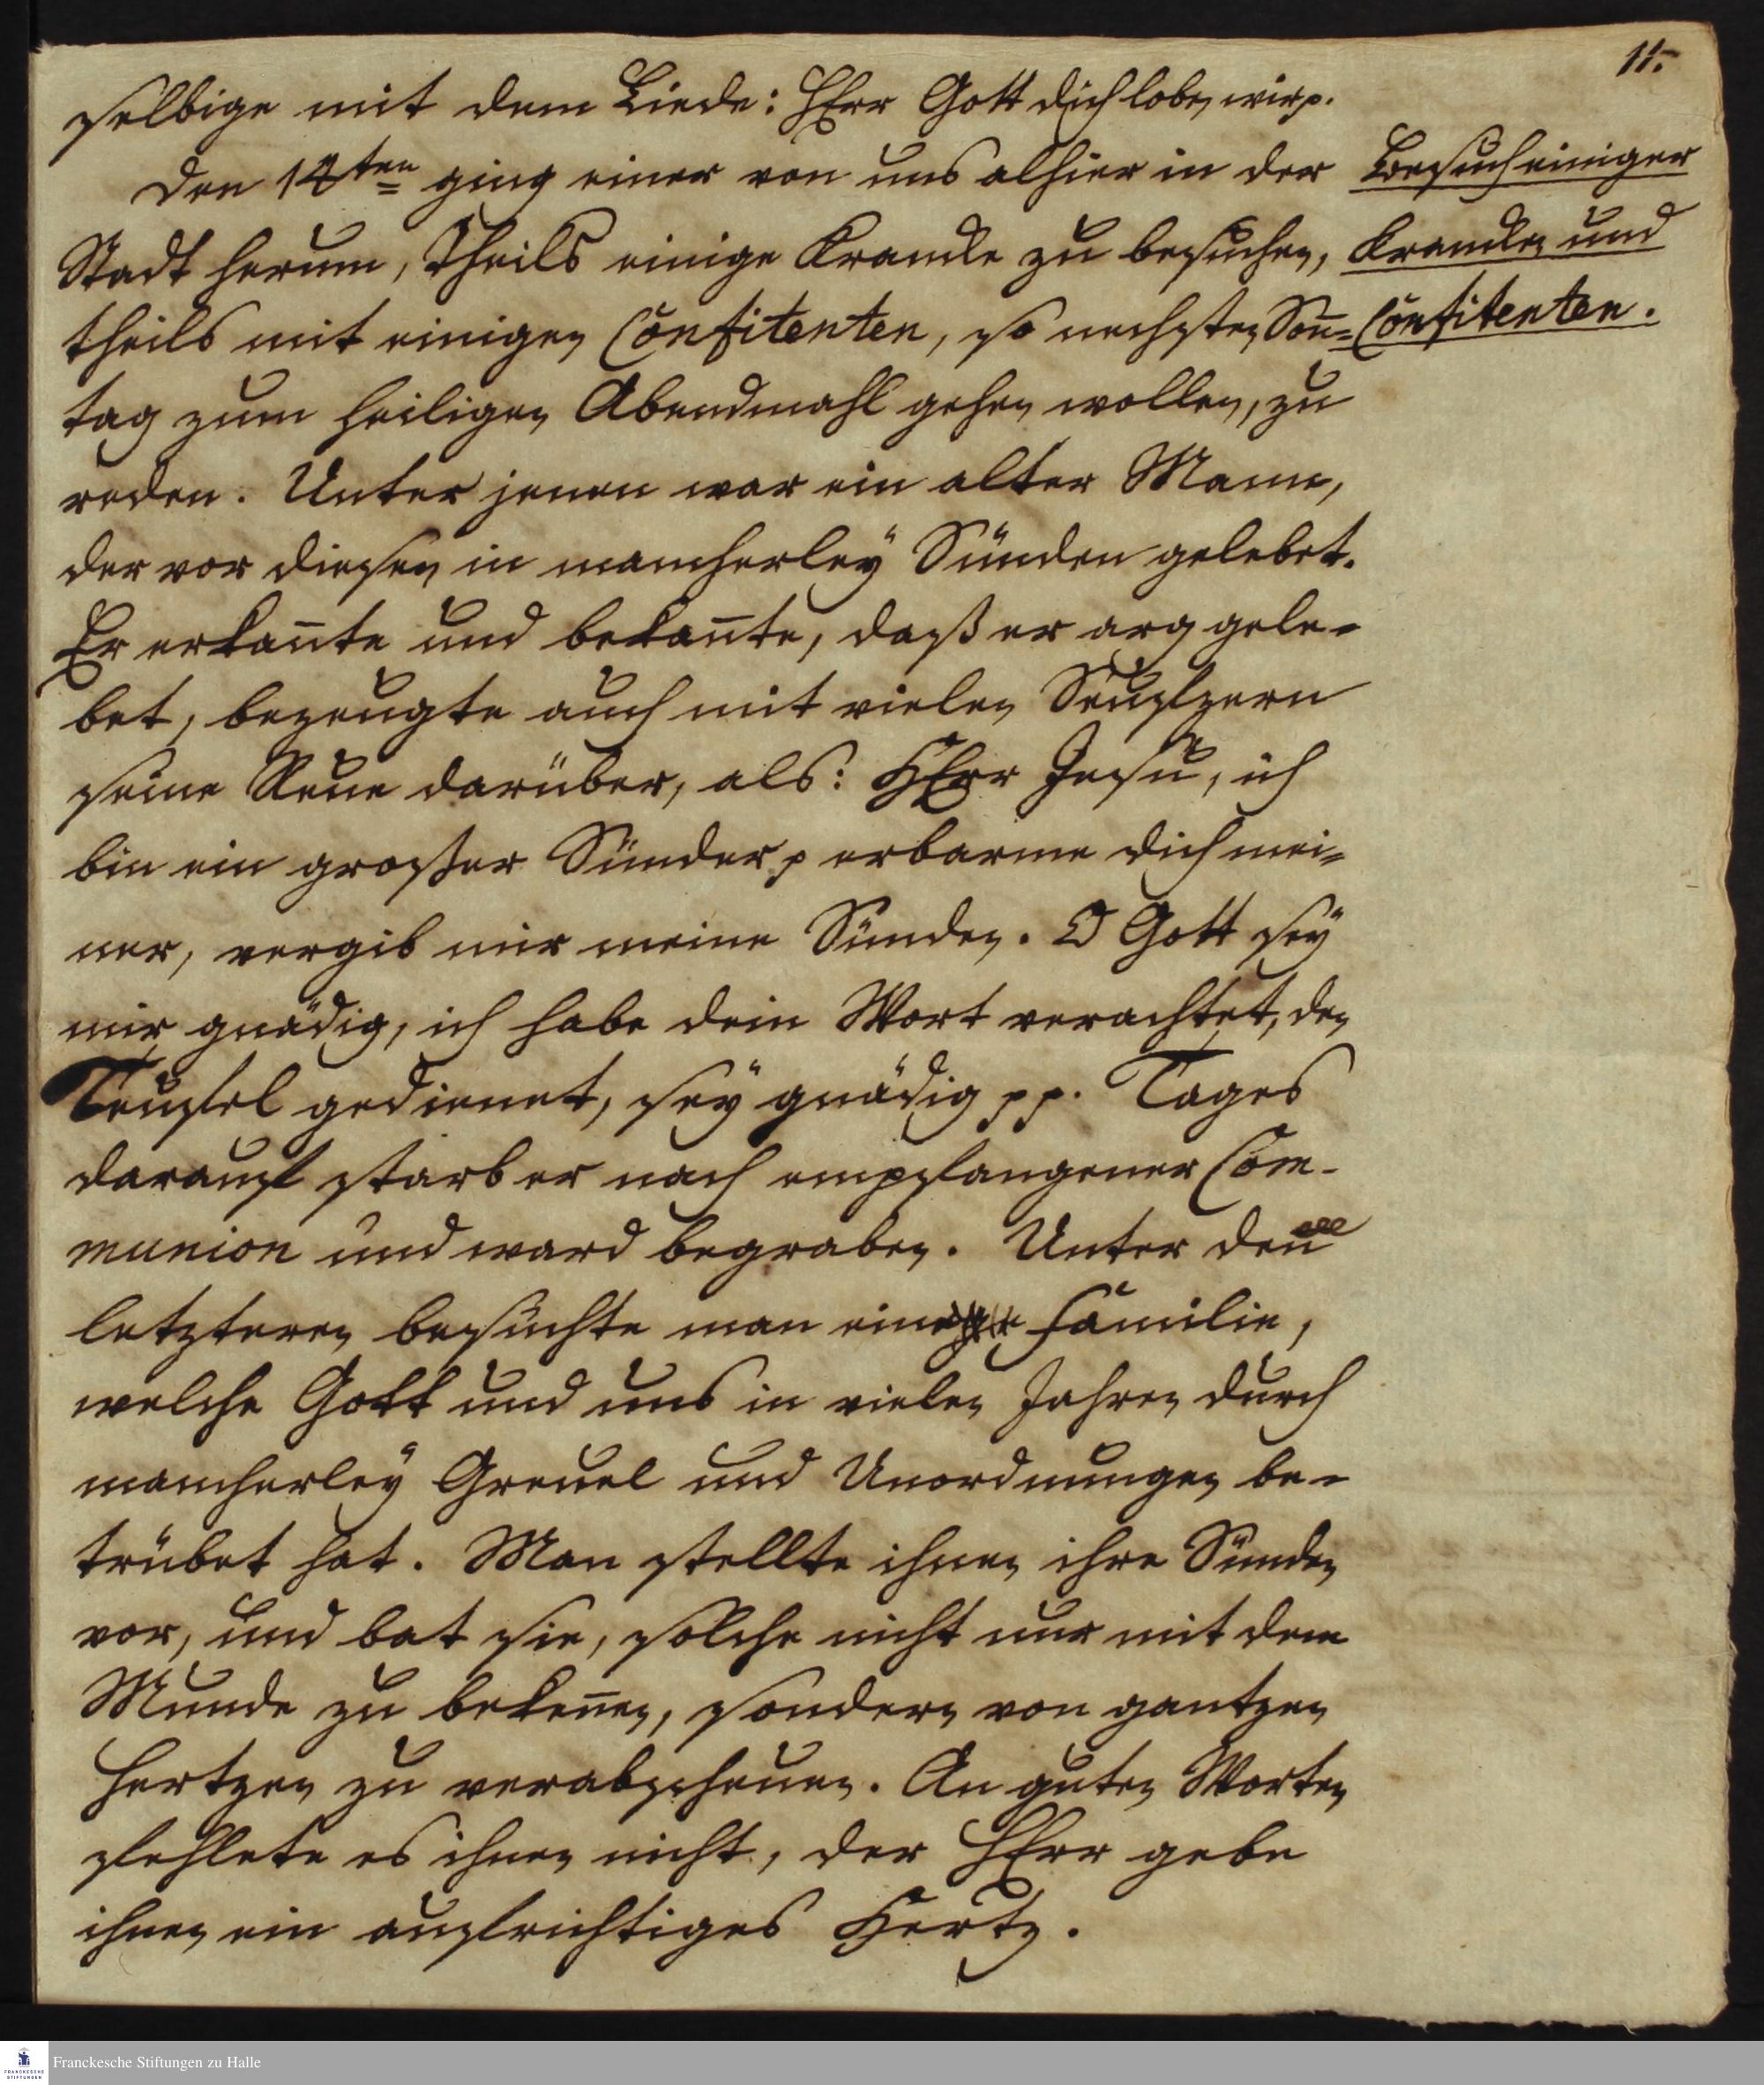 11.
selbige mit dem Liede: HErr Gott dich loben wir p.
Den 14ten ging einer von uns alhier in der
Stadt herum, theils einige Krancke zu besuchen,
theils mit einigen Confitenten, so nechsten Soñ-
tag zum heiligen Abendmahl gehen wollen, zu
reden. Unter jenen war ein alter Mann,
der vor diesen in mancherley Sünden gelebet.
Er erkañte und bekañte, daß er arg gele-
bet, bezeugte auch mit vielen Seufzern
seine Reue darüber, als: HErr Jesu, ich
bin ein großer Sünder p erbarme dich mei-
ner, vergib mir meine Sünden. O Gott sey
mir gnädig, ich habe dein Wort verachtet, den
Teufel gedienet, sey gnädig pp. Tages
darauf starb er nach empfangener Com-
munion und ward begraben. Unter den
letzteren besuchte man eine Familie,
welche Gott und uns in vielen Jahren durch
mancherley Greuel und Unordnungen be-
trübet hat. Man stellte ihnen ihre Sünden
vor, und bat sie, solche nicht nur mit dem
Munde zu bekeñen, sondern von gantzen
Hertzen zu verabscheuen. An guten Worten
fehlete es ihnen nicht, der HErr gebe
ihnen ein aufrichtiges Hertz.
Besuch einiger
Krancken und
Confitenten.
Franckesche Stiftungen zu Halle
FRANCKESCHE
STIFTUNGEN